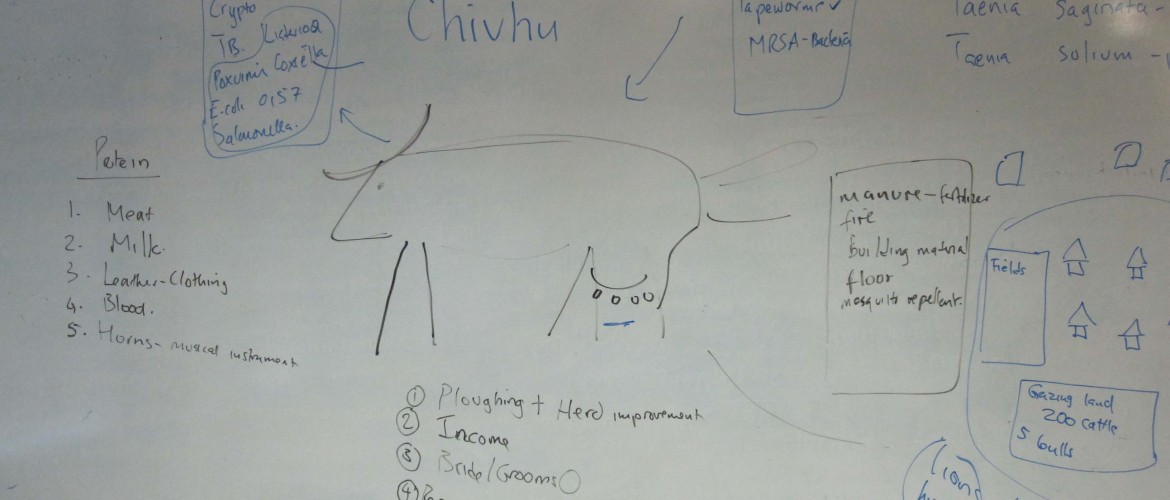 Crypto
TB. Listeriosis
Poxvirus Coxiella
E.coli 0157
Salmonella.
Chivhu
Tapeworms ✓
MRSA-Bacteria
Taenia Saginata -
Taenia solium -
Protein
1. Meat
2. Milk.
3. Leather-Clothing
4. Blood.
5. Horns- musical instrument
manure-fertilizer
fire
building material
floor
mosquito repellent.
Fields
Grazing land
200 cattle
5 bulls
① Ploughing + Herd improvement
② Income
③ Bride/Grooms
④
Lions